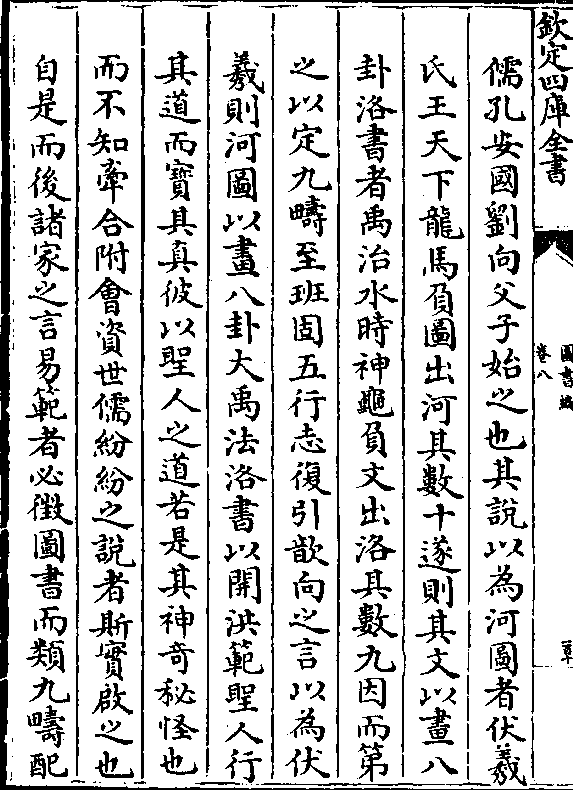 欽定四庫全書
圖書編
卷八
儒孔安國劉向父子始之也其說以為河圖者伏羲
氏王天下龍馬負圖出河其數十遂則其文以畫八
卦洛書者禹治水時神龜負文出洛其數九因而第
之以定九疇至班固五行志復引歆向之言以為伏
羲則河圖以畫八卦大禹法洛書以開洪範聖人行
其道而寶其真彼以聖人之道若是其神竒秘怪也
而不知牽合附會資世儒紛紛之說者斯實啟之也
自是而後諸家之言易範者必徵圖書而類九疇配